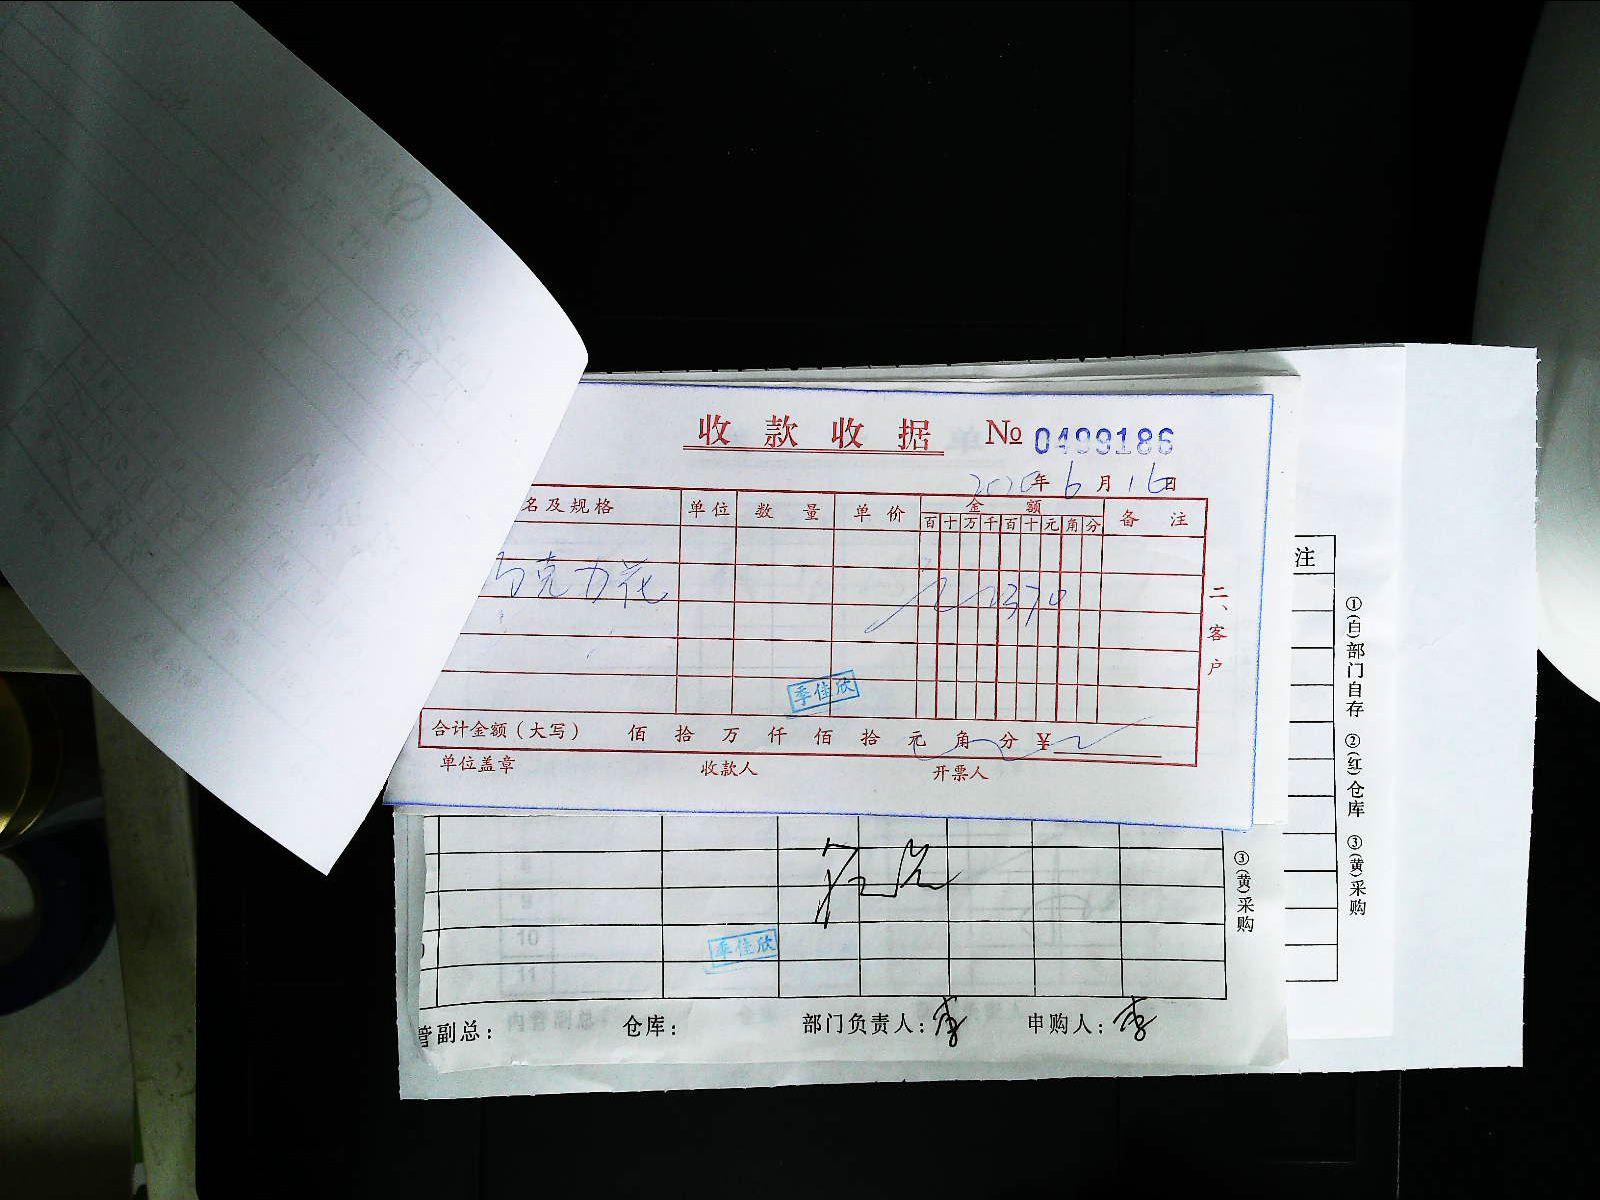 收款收据 № 0499186
2020年6月16日
名及规格 单位 数量 单价 金额 备注
百十万千百十元角分
克力花 370
季佳欣
合计金额（大写） 佰 拾 万 仟 佰 拾 元 角 分 ¥
单位盖章 收款人 开票人
二、客户
注
①(白)部门自存 ②(红)仓库 ③(黄)采购
③(黄)采购
季佳欣
10
11
管副总： 仓库： 部门负责人：李 申购人：李